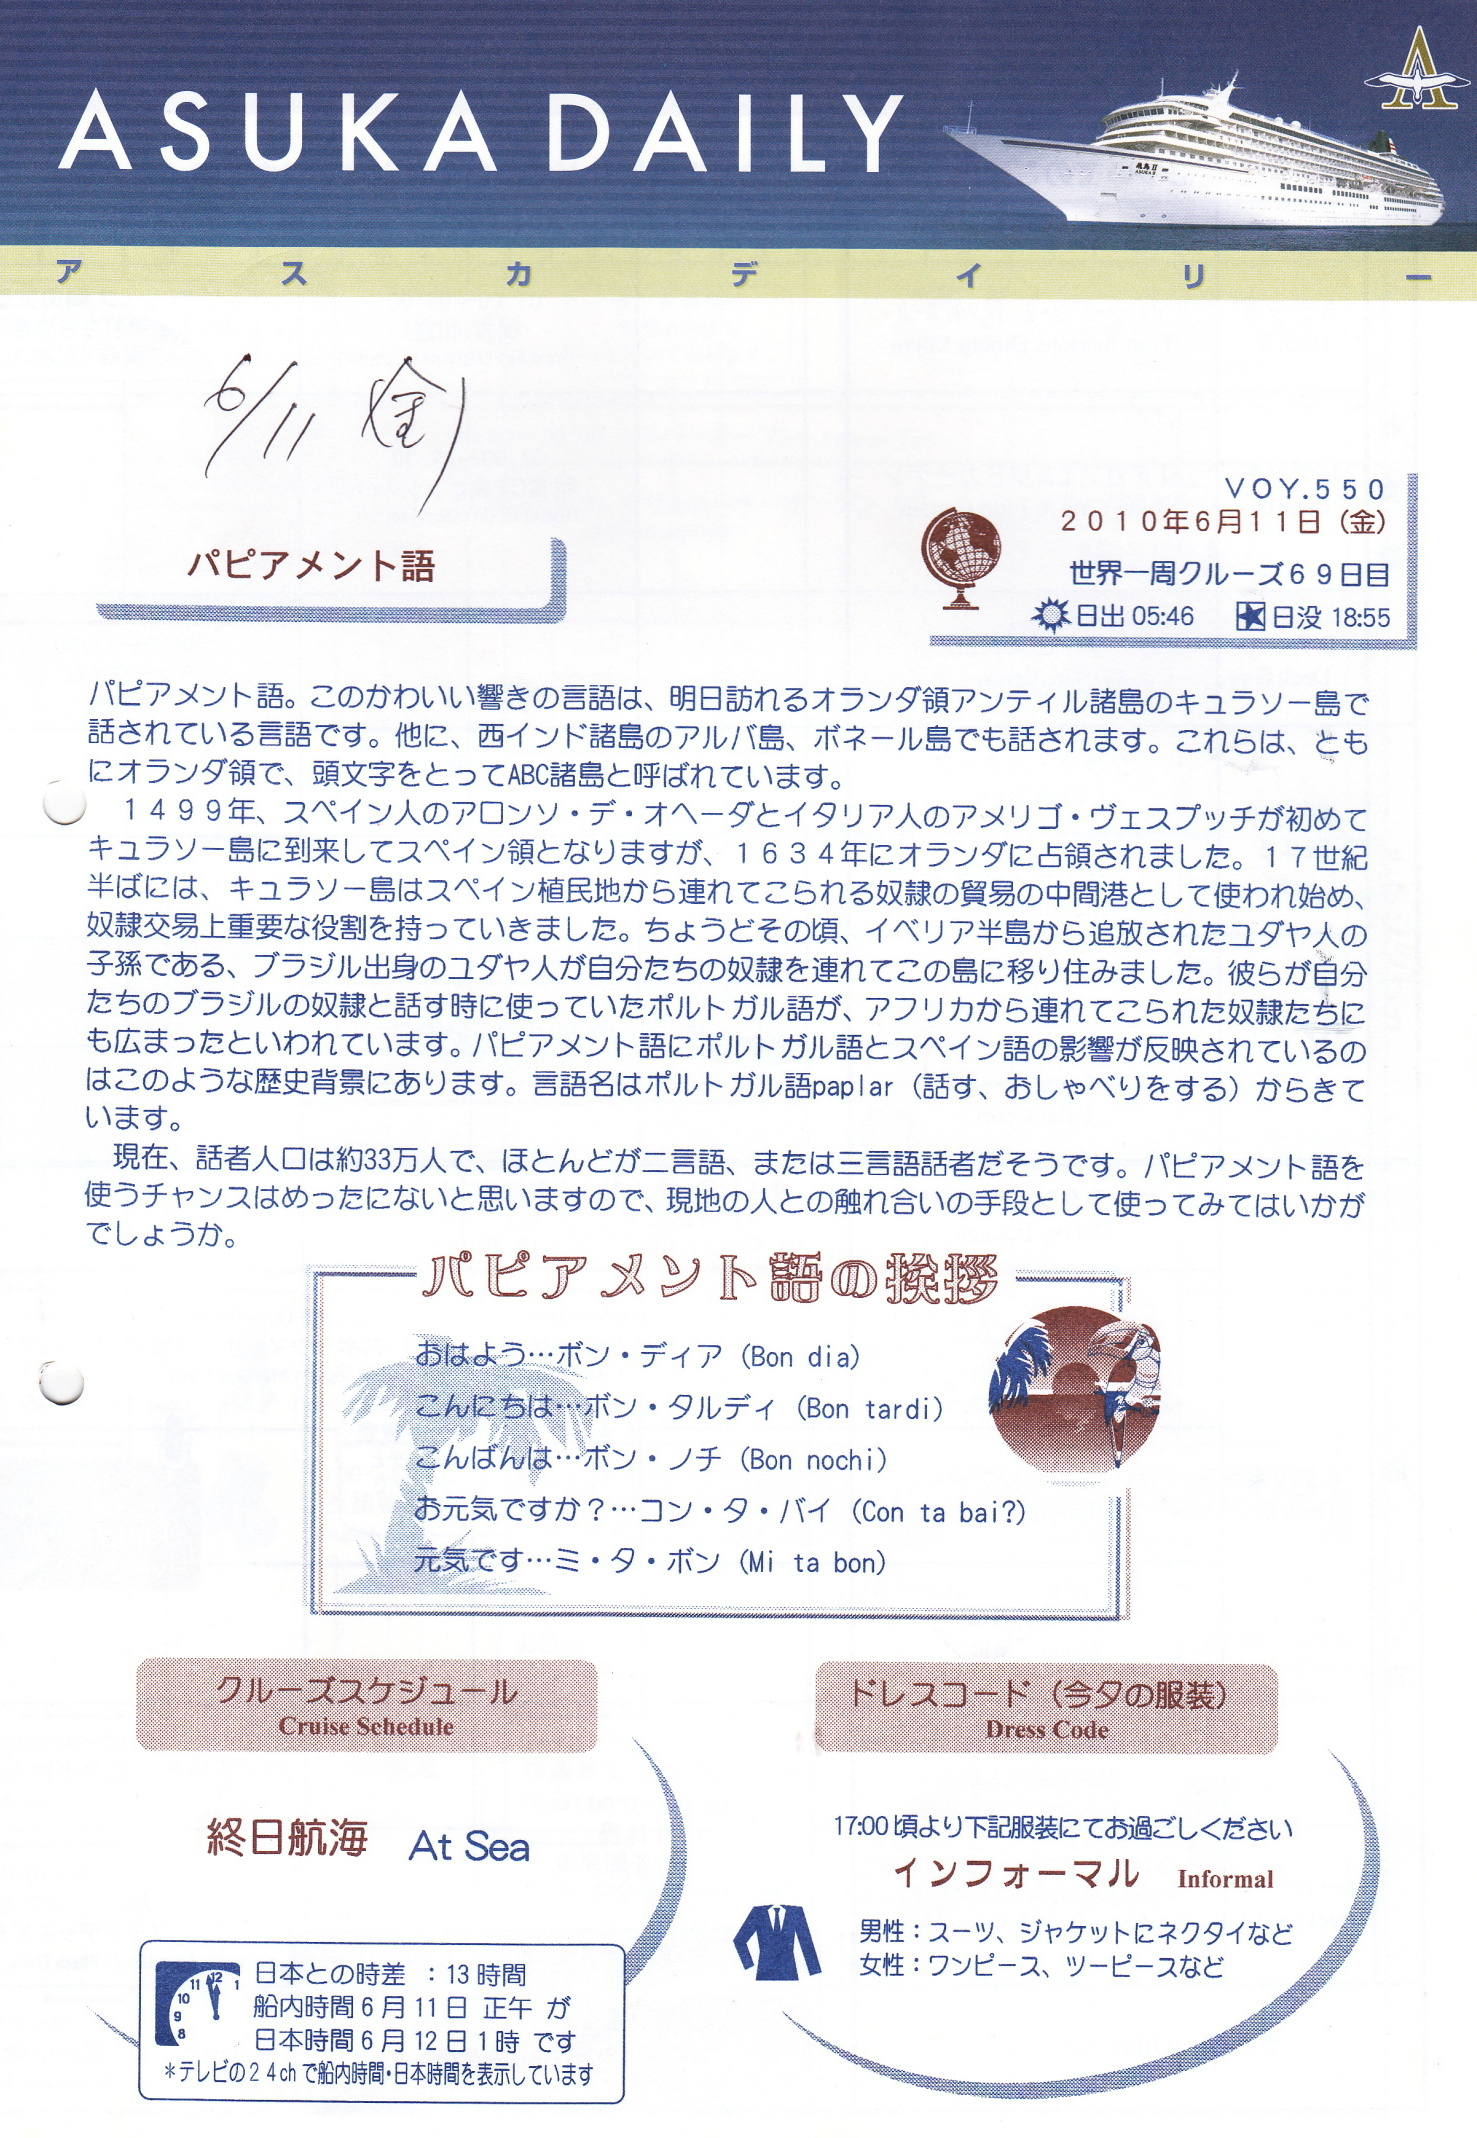 ASUKA DAILY
飛鳥Ⅱ
ASUKA Ⅱ
アスカデイリー
6/11 (金)
VOY.550
2010年6月11日(金)
世界一周クルーズ69日目
日出 05:46 日没 18:55
パピアメント語
パピアメント語。このかわいい響きの言語は、明日訪れるオランダ領アンティル諸島のキュラソー島で
話されている言語です。他に、西インド諸島のアルバ島、ボネール島でも話されます。これらは、とも
にオランダ領で、頭文字をとってABC諸島と呼ばれています。
1499年、スペイン人のアロンソ・デ・オヘーダとイタリア人のアメリゴ・ヴェスプッチが初めて
キュラソー島に到来してスペイン領となりますが、1634年にオランダに占領されました。17世紀
半ばには、キュラソー島はスペイン植民地から連れてこられる奴隷の貿易の中間港として使われ始め、
奴隷交易上重要な役割を持っていきました。ちょうどその頃、イベリア半島から追放されたユダヤ人の
子孫である、ブラジル出身のユダヤ人が自分たちの奴隷を連れてこの島に移り住みました。彼らが自分
たちのブラジルの奴隷と話す時に使っていたポルトガル語が、アフリカから連れてこられた奴隷たちに
も広まったといわれています。パピアメント語にポルトガル語とスペイン語の影響が反映されているの
はこのような歴史背景にあります。言語名はポルトガル語paplar(話す、おしゃべりをする)からきて
います。
現在、話者人口は約33万人で、ほとんどが二言語、または三言語話者だそうです。パピアメント語を
使うチャンスはめったにないと思いますので、現地の人との触れ合いの手段として使ってみてはいかが
でしょうか。
パピアメント語の挨拶
おはよう…ボン・ディア (Bon dia)
こんにちは…ボン・タルディ (Bon tardi)
こんばんは…ボン・ノチ (Bon nochi)
お元気ですか?…コン・タ・バイ (Con ta bai?)
元気です…ミ・タ・ボン (Mi ta bon)
クルーズスケジュール
Cruise Schedule
終日航海 At Sea
日本との時差 :13時間
船内時間6月11日 正午 が
日本時間6月12日1時 です
*テレビの24chで船内時間・日本時間を表示しています
11 12 1
10
9
8
ドレスコード(今夕の服装)
Dress Code
17:00頃より下記服装にてお過ごしください
インフォーマル Informal
男性:スーツ、ジャケットにネクタイなど
女性:ワンピース、ツーピースなど